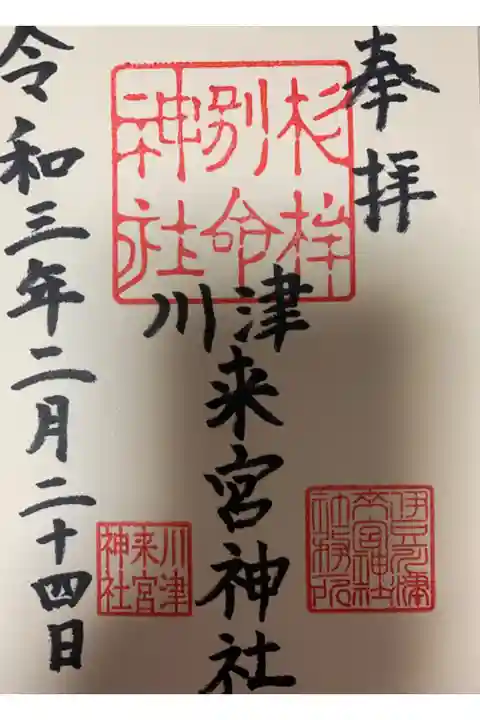 奉拝
杉桙
別命
神社
川津
来宮神社
来宮神社
社務所
川津
来宮
神社
令和三年二月二十四日